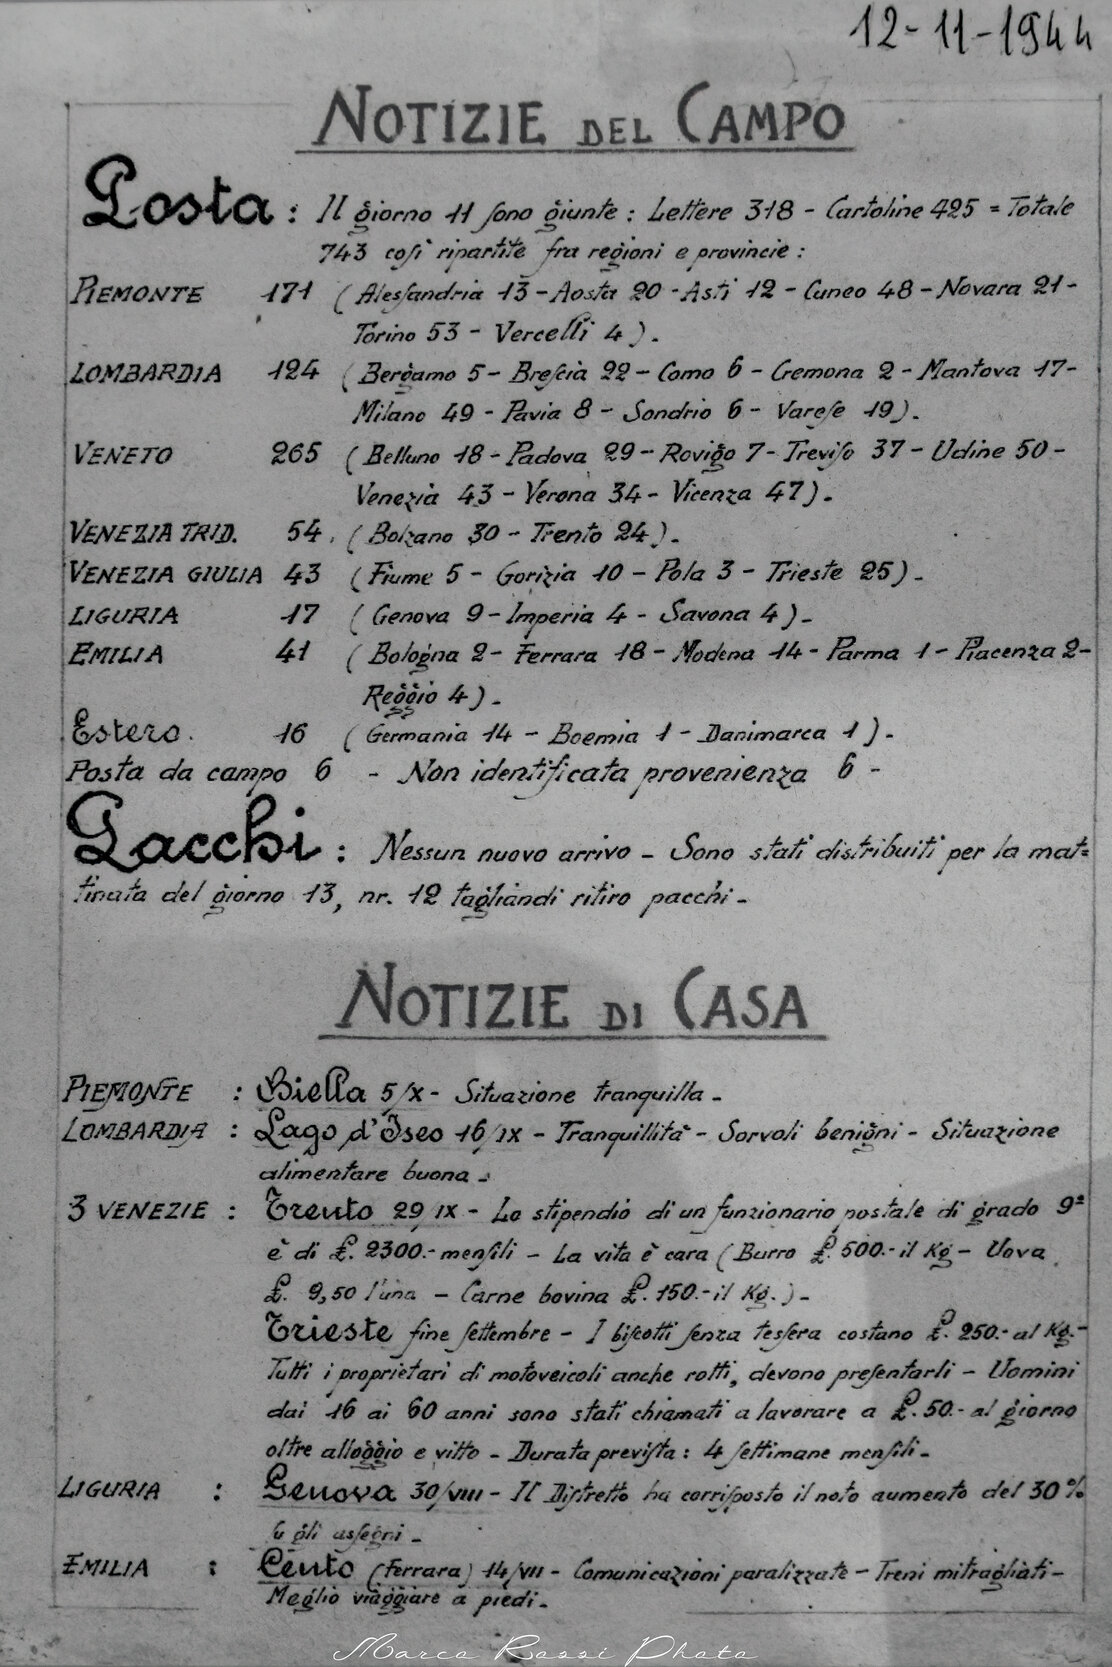 12-11-1944
NOTIZIE DEL CAMPO
Posta: Il giorno 11 sono giunte: Lettere 318 - Cartoline 425 = Totale
743 così ripartite fra regioni e provincie:
PIEMONTE 171 (Alessandria 13 - Aosta 20 - Asti 12 - Cuneo 48 - Novara 21 -
Torino 53 - Vercelli 4).
LOMBARDIA 124 (Bergamo 5 - Brescia 22 - Como 6 - Cremona 2 - Mantova 17 -
Milano 49 - Pavia 8 - Sondrio 6 - Varese 19).
VENETO 265 (Belluno 18 - Padova 29 - Rovigo 7 - Treviso 37 - Udine 50 -
Venezia 43 - Verona 34 - Vicenza 47).
VENEZIA TRID. 54. (Bolzano 30 - Trento 24).
VENEZIA GIULIA 43 (Fiume 5 - Gorizia 10 - Pola 3 - Trieste 25).
LIGURIA 17 (Genova 9 - Imperia 4 - Savona 4).
EMILIA 41 (Bologna 2 - Ferrara 18 - Modena 14 - Parma 1 - Piacenza 2 -
Reggio 4).
Estero. 16 (Germania 14 - Boemia 1 - Danimarca 1).
Posta da campo 6 - Non identificata provenienza 6 -
Pacchi: Nessun nuovo arrivo - Sono stati distribuiti per la mat=
tinata del giorno 13, nr. 12 tagliandi ritiro pacchi -
NOTIZIE DI CASA
PIEMONTE : Biella 5/X - Situazione tranquilla -
LOMBARDIA : Lago d'Iseo 16/IX - Tranquillità - Sorvoli benigni - Situazione
alimentare buona -
3 VENEZIE : Trento 29/IX - Lo stipendio di un funzionario postale di grado 9º
è di £. 2300.- mensili - La vita è cara (Burro £. 500.- il Kg - Uova
£. 9,50 l'una - Carne bovina £. 150.- il Kg.) -
Trieste fine settembre - I biscotti senza tessera costano £. 250.- al Kg.-
Tutti i proprietari di motoveicoli anche rotti, devono presentarli - Uomini
dai 16 ai 60 anni sono stati chiamati a lavorare a £. 50.- al giorno
oltre alloggio e vitto - Durata prevista: 4 settimane mensili -
LIGURIA : Genova 30/VIII - Il Distretto ha corrisposto il noto aumento del 30%
su gli assegni -
EMILIA : Cento (Ferrara) 14/VII - Comunicazioni paralizzate - Treni mitragliati -
Meglio viaggiare a piedi -
Marco Rossi Photo